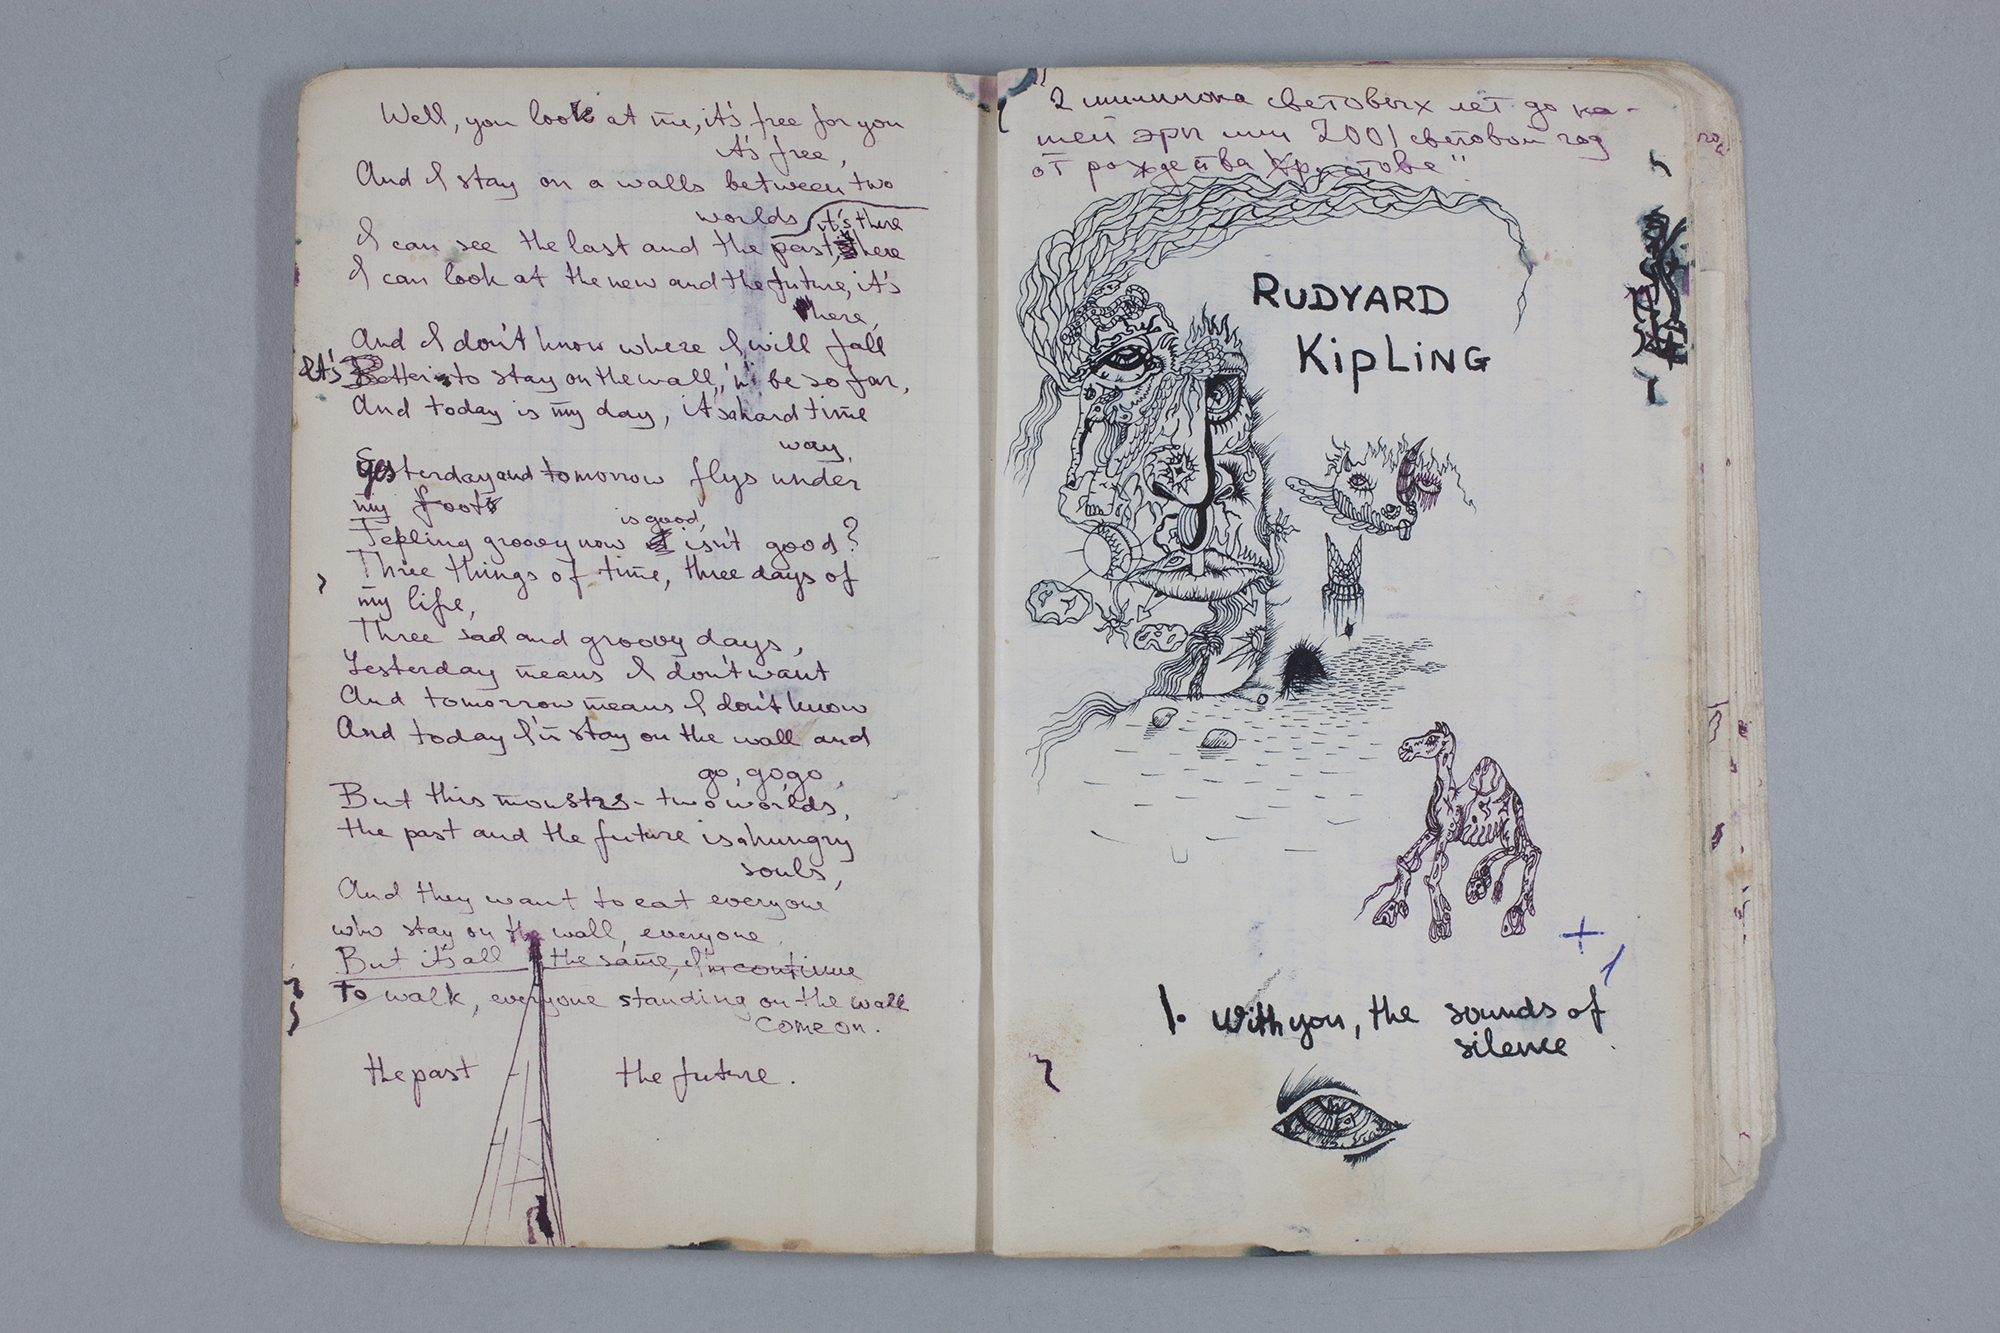 Well, you look at me, it's free for you
it's free,
And I stay on a walls between two
worlds
it's there
I can see the last and the past, there
I can look at the new and the future, it's
here,
And I don't know where I will fall
It's Better to stay on the wall, 'n' be so far,
And today is my day, it's hard time
way.
Yesterday and tomorrow flys under
my foot
is good,
Feeling groovy now isn't good?
Three things of time, three days of
my life,
Three sad and groovy days,
Yesterday means I don't want
And tomorrow means I don't know
And today I'm stay on the wall and
go, go go,
But this monstrs - two worlds,
the past and the future is a hungry
souls,
And they want to eat everyone
who stay on the wall, everyone
But it's all the same, I'm continue
To walk, everyone standing on the wall
come on.
the past the future.
2 миллиона световых лет до на-
шей эры или 2001 световой год
от рождества Христове"
RUDYARD
KipLiNG
1. With you, the sounds of
silence